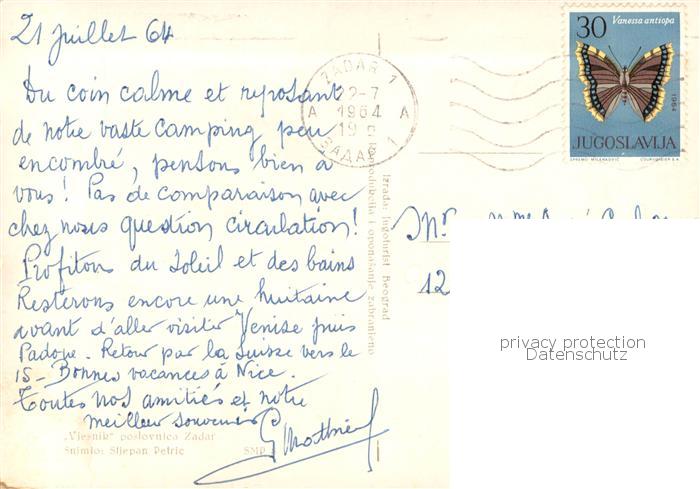 21 juillet 64
Du coin calme et reposant
de notre vaste camping peu
encombré, pensons bien à
vous! Pas de comparaison avec
chez nous question circulation!
Profitons du soleil et des bains
Resterons encore une huitaine
avant d'aller visiter Venise puis
Padoue. Retour par la Suisse vers le
15 - Bonnes vacances à Nice.
Toutes nos amitiés et notre
meilleur souvenir
„Vjesnik" poslovnica Zadar
Snimio: Stjepan Petric
SMP
Izrada: Jugoturist Beograd
i oponašanje zabranjeno
ZADAR 1
22-7
A 1964 A
19
ЗАДАР 1
30
Vanessa antiopa
1964
JUGOSLAVIJA
SPREMO MILENKOVIĆ
COURVOISIER S.A.
Mr
12
privacy protection
Datenschutz